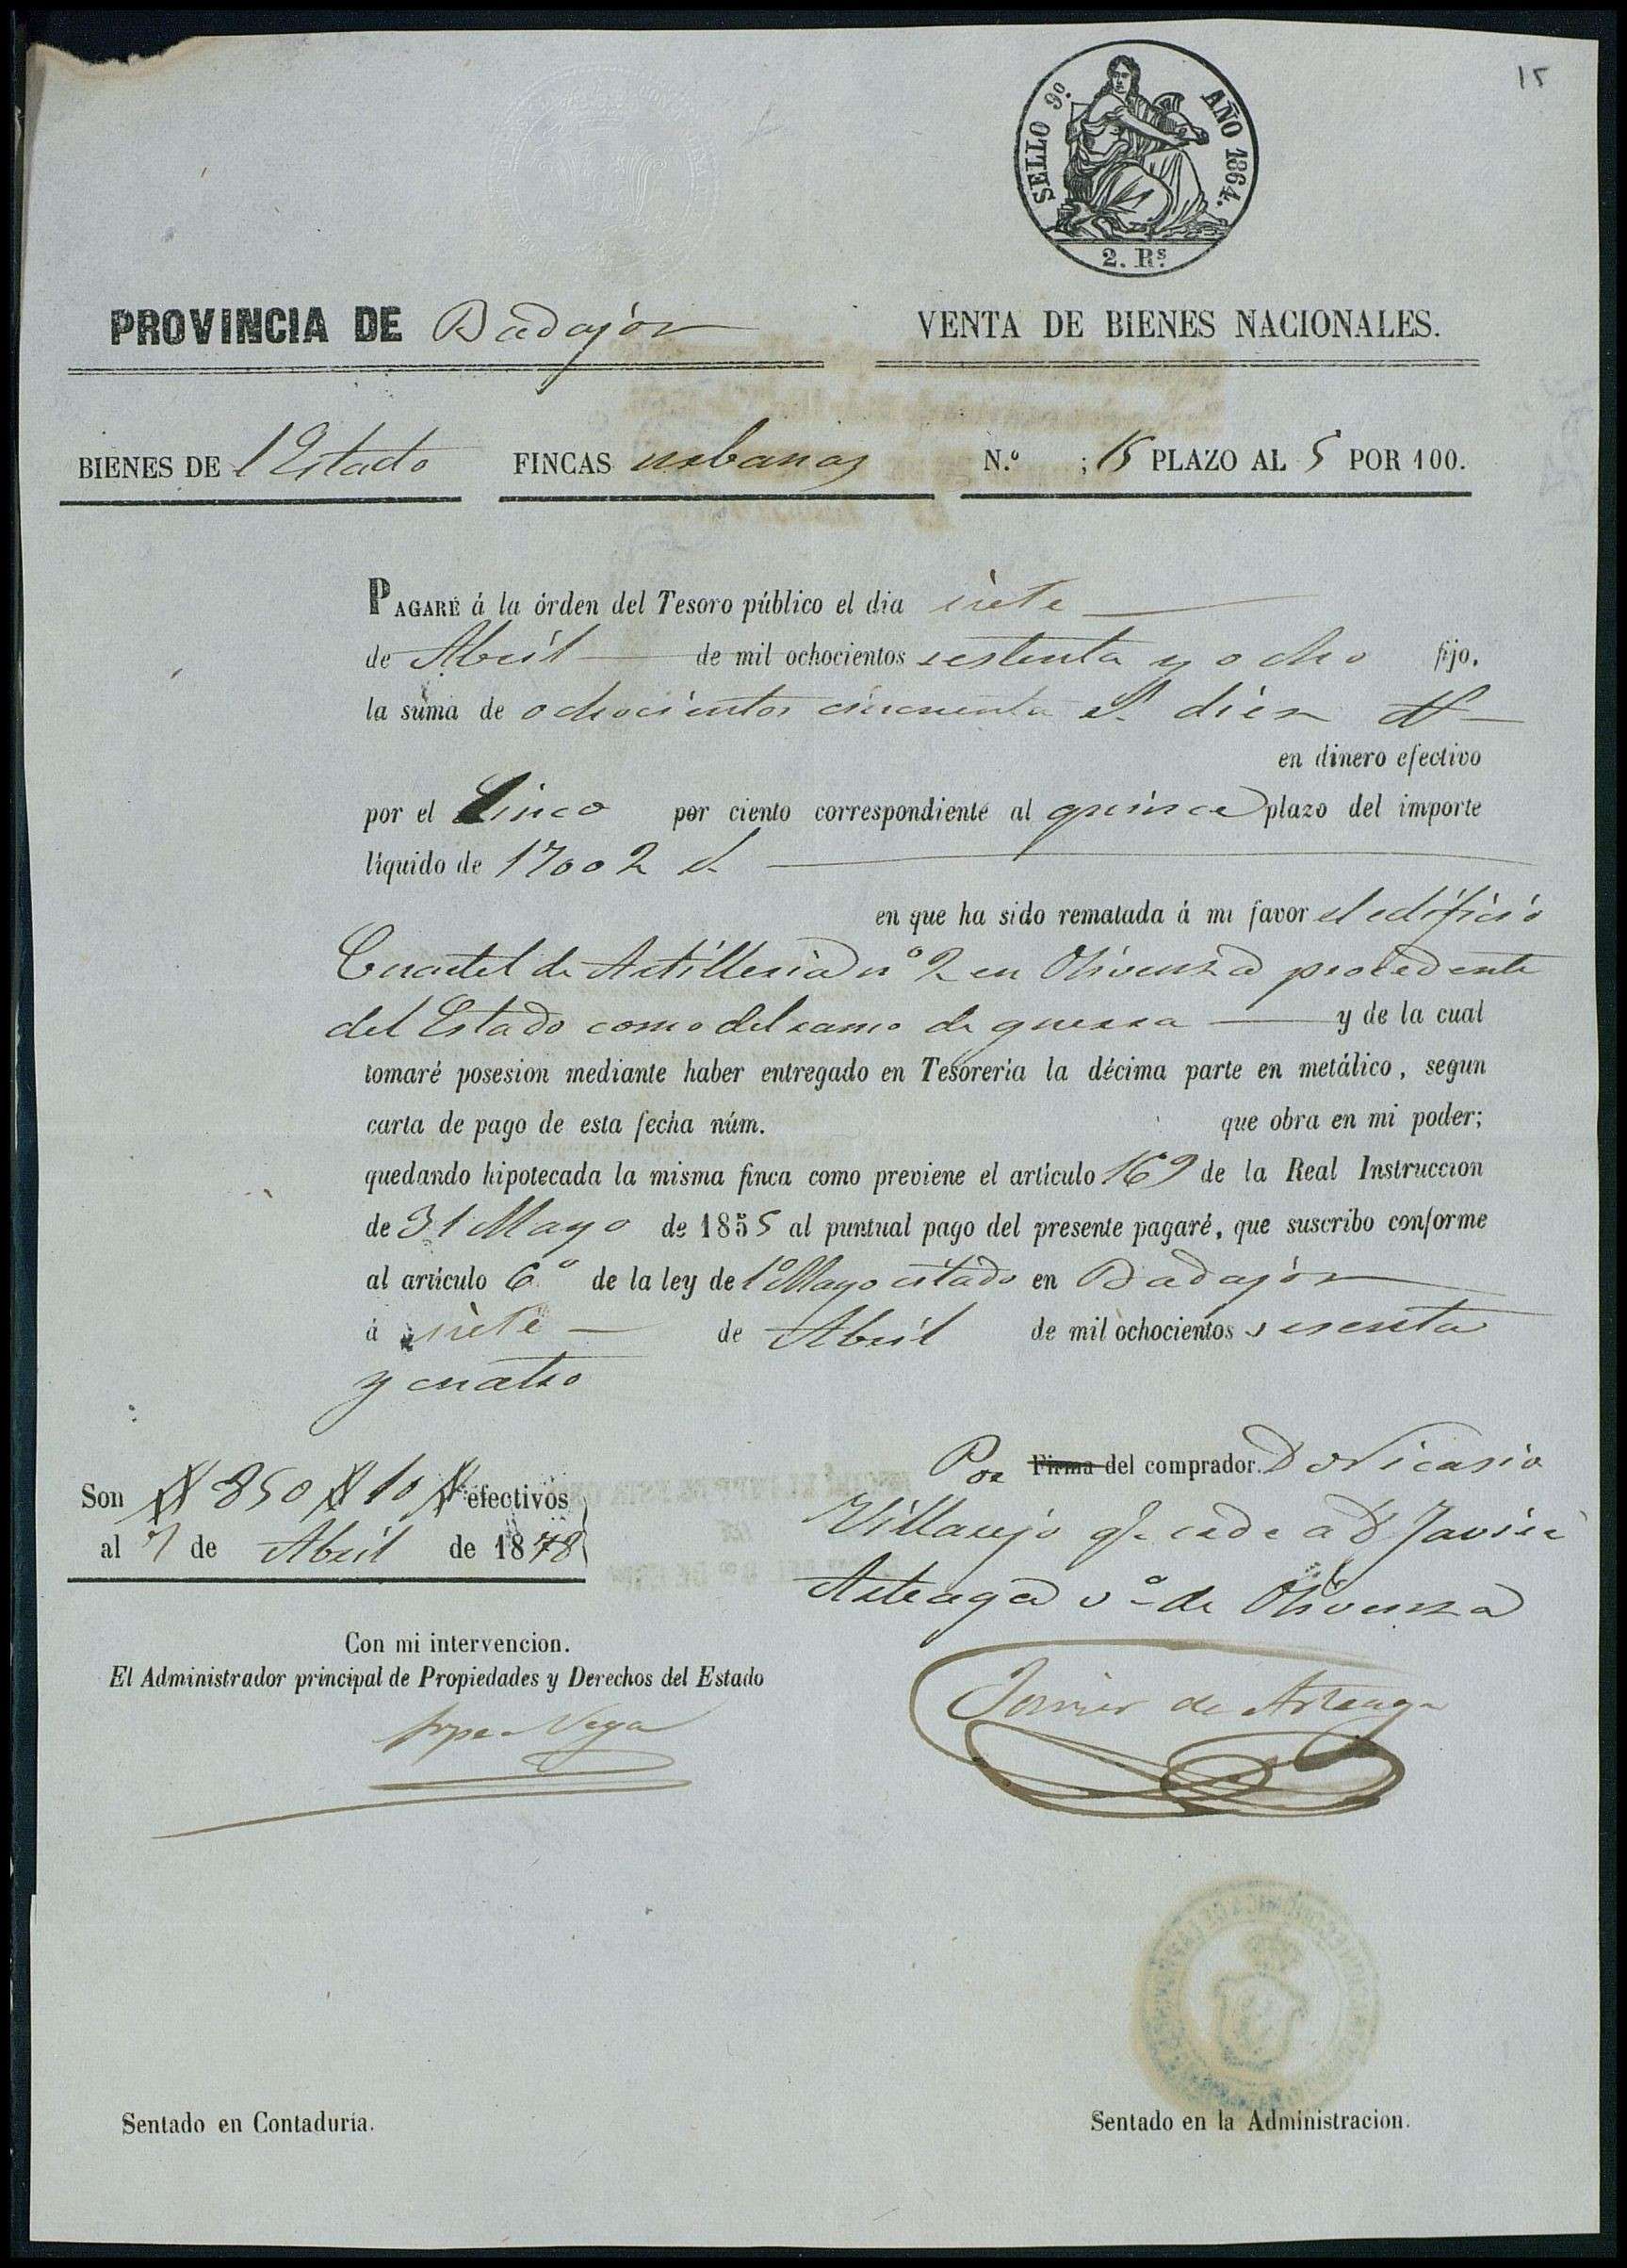 15
SELLO 9º. AÑO 1864.
2. Rs.
PROVINCIA DE Badajoz
VENTA DE BIENES NACIONALES.
BIENES DE l Estado FINCAS urbanas N.º ; 15 PLAZO AL 5 POR 100.
PAGARÉ á la órden del Tesoro público el dia siete
de Abril de mil ochocientos setenta y ocho fijo,
la suma de ochocientos cincuenta r.s diez
en dinero efectivo
por el Cinco por ciento correspondiente al quince plazo del importe
líquido de 17002 r.s
en que ha sido rematada á mi favor el edificio
Cuartel de Artilleria nº 2 en Olivenza procedente
del Estado como del ramo de guerra y de la cual
tomaré posesion mediante haber entregado en Tesorería la décima parte en metálico, segun
carta de pago de esta fecha núm. que obra en mi poder;
quedando hipotecada la misma finca como previene el artículo 169 de la Real Instruccion
de 31 Mayo de 1855 al puntual pago del presente pagaré, que suscribo conforme
al artículo 6.º de la ley de 1º Mayo citado en Badajoz
á siete de Abril de mil ochocientos sesenta
y cuatro
Por Firma del comprador. D Nicasio
Son 850 10 efectivos
Villarejo q.e cede a D Javier
al 7 de Abril de 1878
Arteaga vº de Olivenza
Con mi intervencion.
El Administrador principal de Propiedades y Derechos del Estado
Javier de Arteaga
Vega
Sentado en Contaduría.
Sentado en la Administracion.